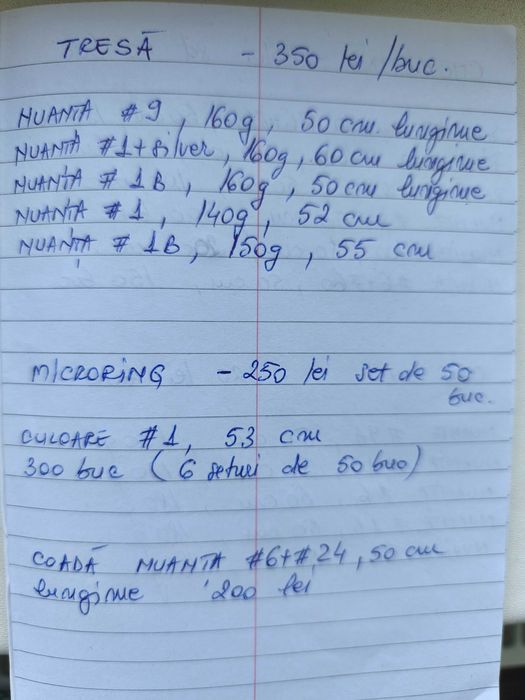 TRESĂ - 350 lei/buc.
NUANTĂ #9, 160g, 50 cm lungime
NUANTĂ #1+silver, 160g, 60 cm lungime
NUANTĂ # 1B, 160g, 50 cm lungime
NUANTĂ # 1, 140g, 52 cm
NUANȚĂ # 1B, 150g, 55 cm
MICRORING - 250 lei set de 50
buc.
CULOARE #1, 53 cm
300 buc (6 seturi de 50 buc)
COADĂ NUANTA #6+#24, 50 cm
lungime 200 lei